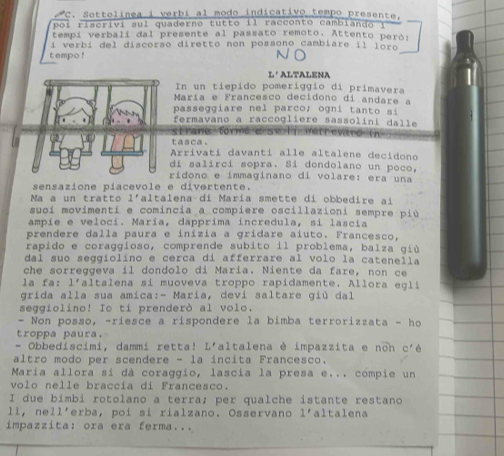 C. Sottolinea i verbi al modo indicativo tempo presente,
poi riscrivi sul quaderno tutto il racconto cambiando i
tempi verbali dal presente al passato remoto. Attento però:
i verbi del discorso diretto non possono cambiare il loro
tempo!
NO
L'ALTALENA
In un tiepido pomeriggio di primavera
Maria e Francesco decidono di andare a
passeggiare nel parco; ogni tanto si
fermavano a raccogliere sassolini dalle
strane forme e se li mettevano in
tasca.
Arrivati davanti alle altalene decidono
di salirci sopra. Si dondolano un poco,
ridono e immaginano di volare: era una
sensazione piacevole e divertente.
Ma a un tratto l'altalena di Maria smette di obbedire ai
suoi movimenti e comincia a compiere oscillazioni sempre più
ampie e veloci. Maria, dapprima incredula, si lascia
prendere dalla paura e inizia a gridare aiuto. Francesco,
rapido e coraggioso, comprende subito il problema, balza giù
dal suo seggiolino e cerca di afferrare al volo la catenella
che sorreggeva il dondolo di Maria. Niente da fare, non ce
la fa: l'altalena si muoveva troppo rapidamente. Allora egli
grida alla sua amica:- Maria, devi saltare giù dal
seggiolino! Io ti prenderò al volo.
- Non posso, -riesce a rispondere la bimba terrorizzata - ho
troppa paura.
- Obbediscimi, dammi retta! L'altalena è impazzita e non c'è
altro modo per scendere - la incita Francesco.
Maria allora si dà coraggio, lascia la presa e... compie un
volo nelle braccia di Francesco.
I due bimbi rotolano a terra; per qualche istante restano
lì, nell'erba, poi si rialzano. Osservano l'altalena
impazzita: ora era ferma...